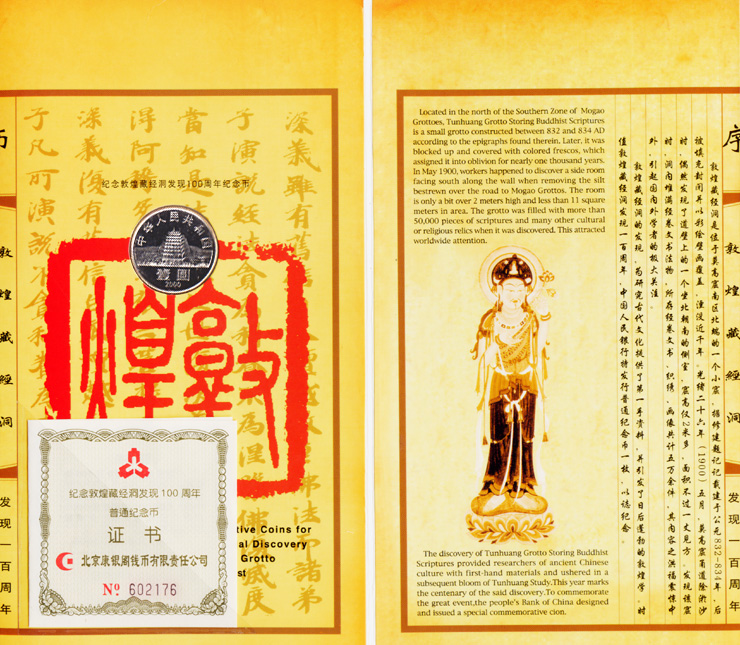 敦煌藏经洞
发现一百周年
纪念敦煌藏经洞发现100周年纪念币
中华人民共和国
壹圆
2000
敦煌
纪念敦煌藏经洞发现100周年
普通纪念币
证书
北京康银阁钱币有限责任公司
Nº 602176
tive Coins for
al Discovery
Grotto
st
Located in the north of the Southern Zone of Mogao
Grottoes, Tunhuang Grotto Storing Buddhist Scriptures
is a small grotto constructed between 832 and 834 AD
according to the epigraphs found therein. Later, it was
blocked up and covered with colored frescos, which
assigned it into oblivion for nearly one thousand years.
In May 1900, workers happened to discover a side room
facing south along the wall when removing the silt
bestrewn over the road to Mogao Grottos. The room
is only a bit over 2 meters high and less than 11 square
meters in area. The grotto was filled with more than
50,000 pieces of scriptures and many other cultural
or religious relics when it was discovered. This attracted
worldwide attention.
The discovery of Tunhuang Grotto Storing Buddhist
Scriptures provided researchers of ancient Chinese
culture with first-hand materials and ushered in a
subsequent bloom of Tunhuang Study.This year marks
the centenary of the said discovery.To commemorate
the great event,the people's Bank of China designed
and issued a special commemorative cion.
序
敦煌藏经洞
发现一百周年
敦煌藏经洞是位于莫高窟南区北端的一个小窟，据修建题记记载建于公元832-834年，后
被填充封闭并以彩绘壁画覆盖，湮没近千年。光绪二十六年（1900）五月，莫高窟甬道除淤沙
时，偶然发现了道壁上的一个坐北朝南的侧室，窟高仅2米多，面积不过一丈见方，发现该窟
时，洞内堆满经卷文书法物，所存经卷文书、织绣、画像共计五万余件，其内容之洪
外，引起国内外学者的极大关注。
敦煌藏经洞的发现，为研究古代文化提供了第一手资料，并引发了日后蓬勃的敦煌学。时
值敦煌藏经洞发现一百周年，中国人民银行特发行普通纪念币一枚，以誌纪念。